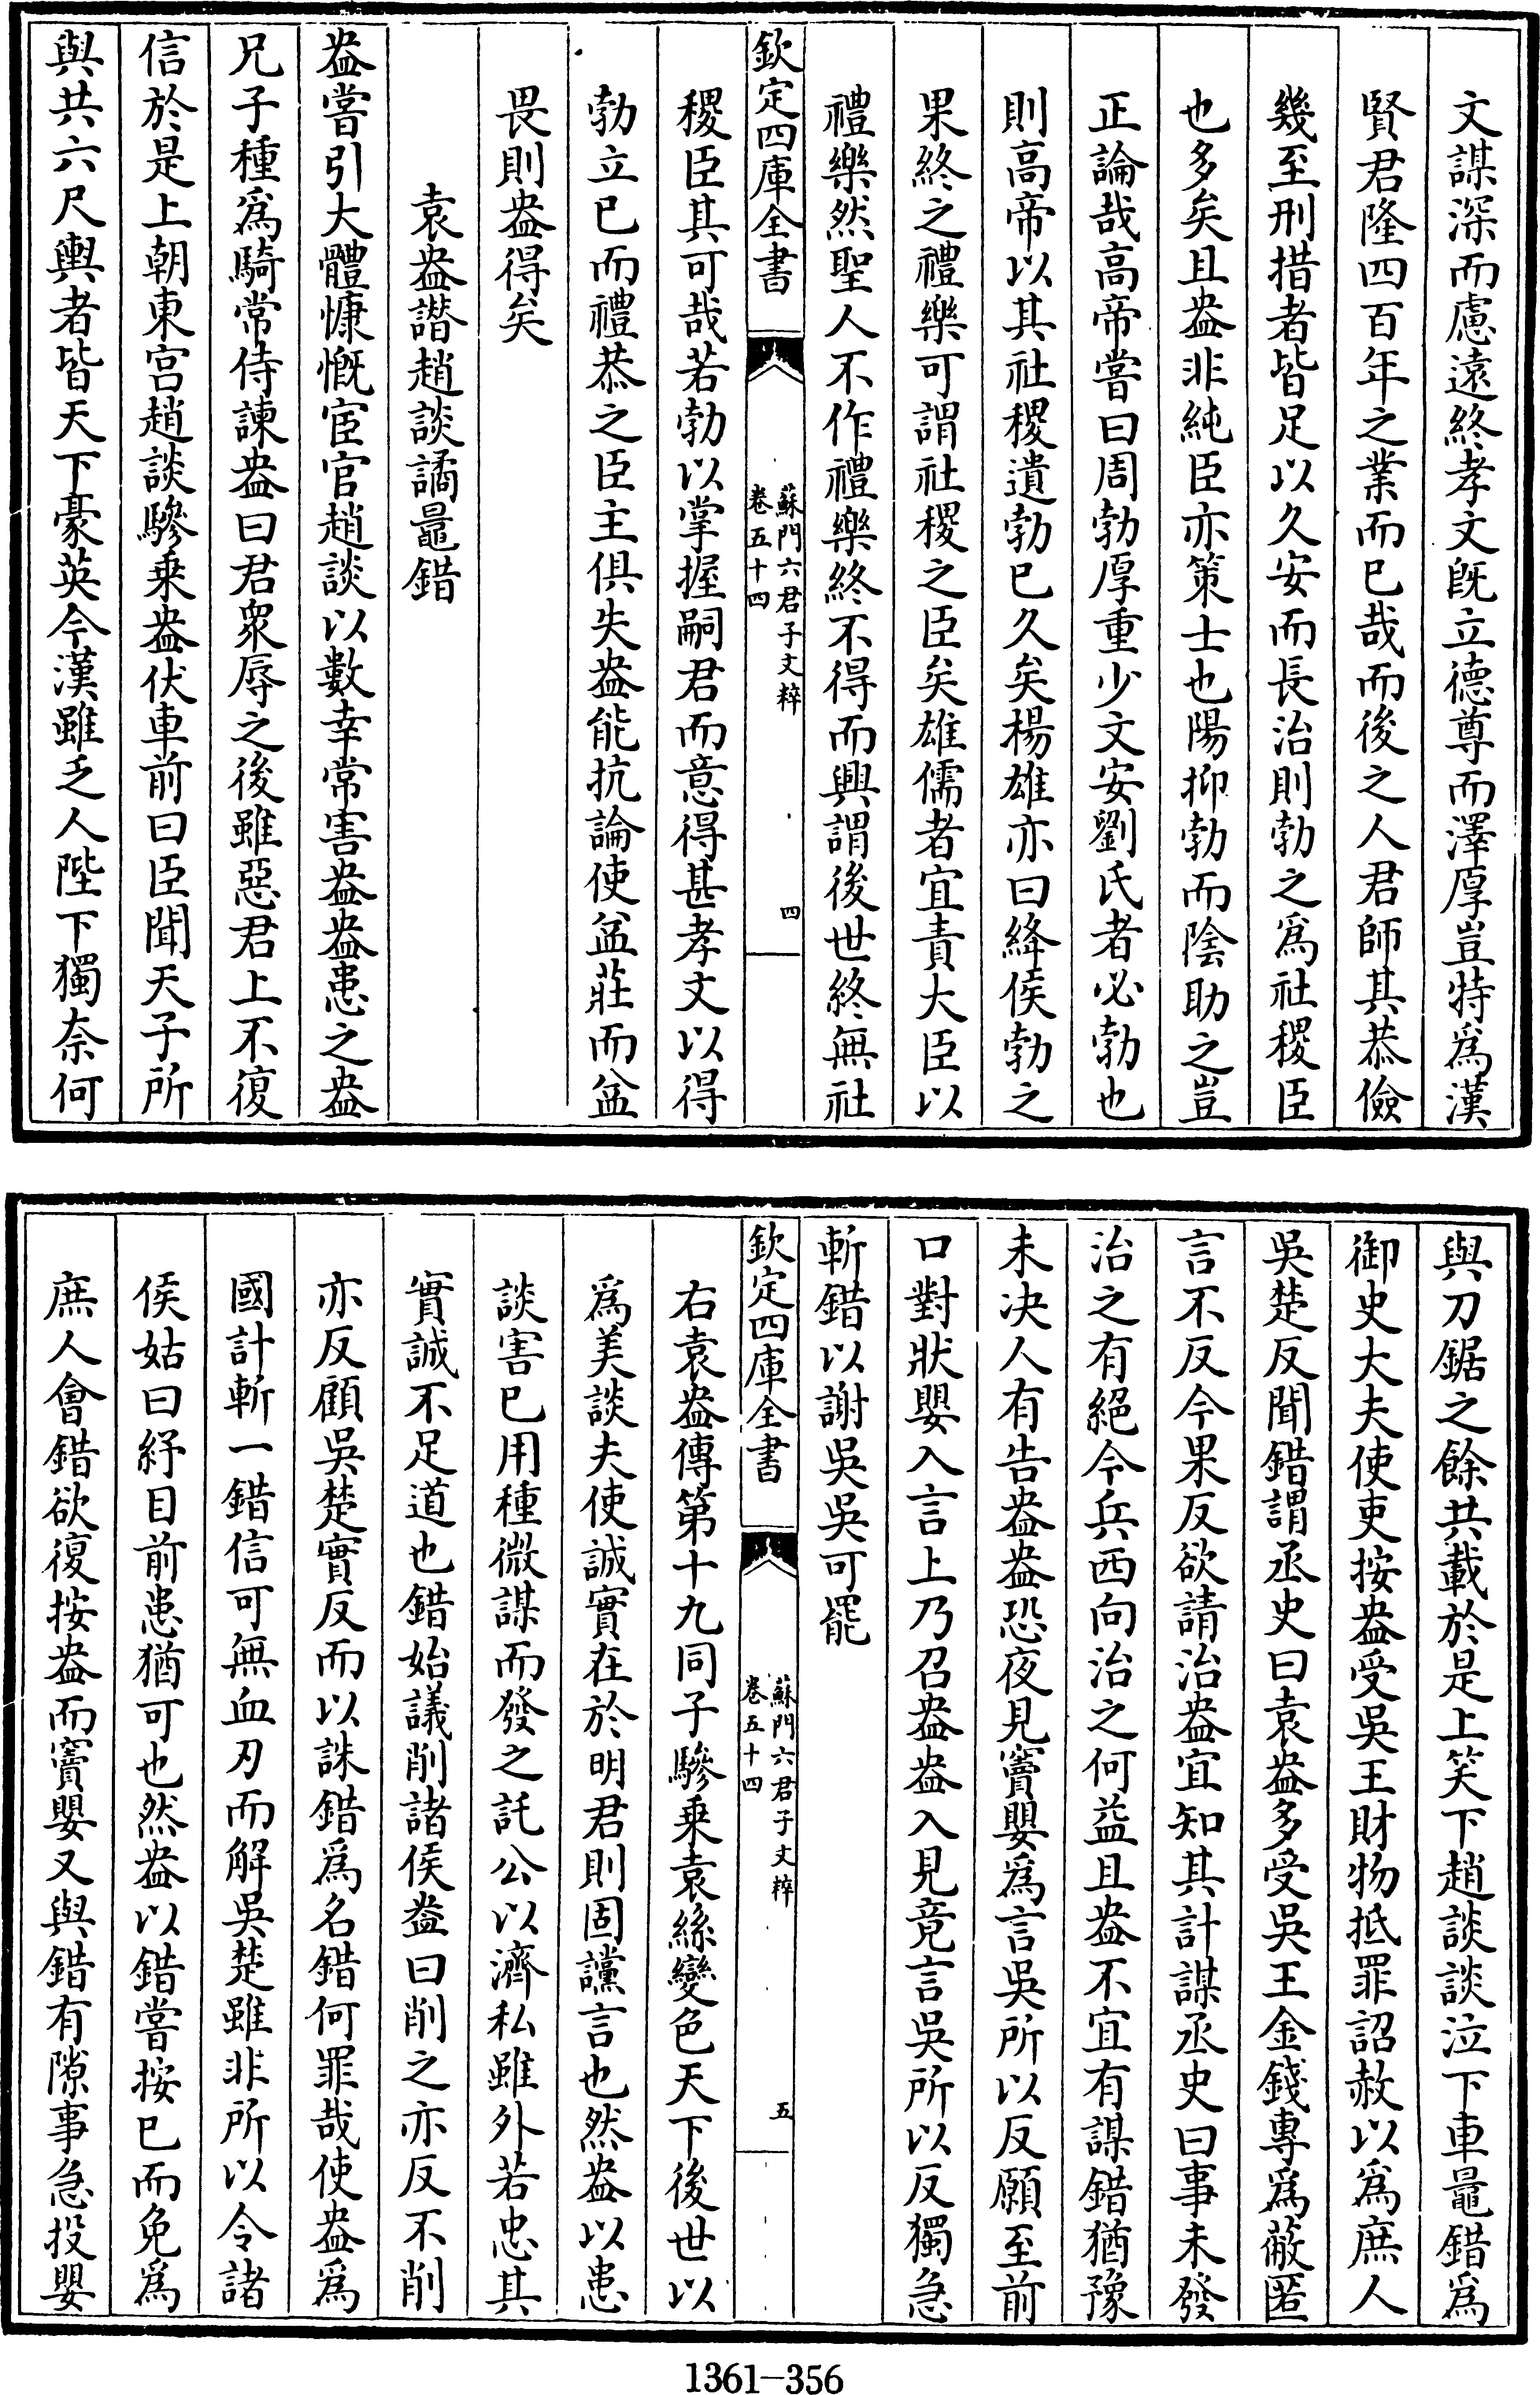 文謀深而慮遠終孝文既立德尊而澤厚豈特爲漢
賢君隆四百年之業而已哉而後之人君師其恭儉
幾至刑措者皆足以久安而長治則勃之爲社稷臣
也多矣且盎非純臣亦策士也陽抑勃而陰助之豈
正論哉高帝嘗曰周勃厚重少文安劉氏者必勃也
則高帝以其社稷遺勃已久矣楊雄亦曰絳侯勃之
果終之禮樂可謂社稷之臣矣雄儒者宜責大臣以
禮樂然聖人不作禮樂終不得而興謂後世終無社
欽定四庫全書
蘇門六君子文粹
卷五十四
四
稷臣其可哉若勃以掌握嗣君而意得甚孝文以得
勃立已而禮恭之臣主俱失盎能抗論使益莊而益
畏則盎得矣
袁盎譖趙談譎鼂錯
盎嘗引大體慷慨宦官趙談以數幸常害盎盎患之盎
兄子種爲騎常侍諫盎曰君衆辱之後雖惡君上不復
信於是上朝東宮趙談驂乗盎伏車前曰臣聞天子所
與共六尺輿者皆天下豪英今漢雖乏人陛下獨奈何
與刀鋸之餘共載於是上笑下趙談談泣下車鼂錯爲
御史大夫使吏按盎受吳王財物抵罪詔赦以爲庶人
吳楚反聞錯謂丞史曰袁盎多受吳王金錢專爲蔽匿
言不反今果反欲請治盎宜知其計謀丞史曰事未發
治之有絕今兵西向治之何益且盎不宜有謀錯猶豫
未决人有告盎盎恐夜見竇嬰爲言吳所以反願至前
口對狀嬰入言上乃召盎盎入見竟言吳所以反獨急
斬錯以謝吳吳可罷
欽定四庫全書
蘇門六君子文粹
卷五十四
五
右袁盎傳第十九同子驂乗袁絲變色天下後世以
爲美談夫使誠實在於明君則固讜言也然盎以患
談害已用種微謀而發之託公以濟私雖外若忠其
實誠不足道也錯始議削諸侯盎曰削之亦反不削
亦反顧吳楚實反而以誅錯爲名錯何罪哉使盎爲
國計斬一錯信可無血刃而解吳楚雖非所以令諸
侯姑曰紓目前患猶可也然盎以錯嘗按已而免爲
庶人會錯欲復按盎而竇嬰又與錯有隙事急投嬰
1361-356